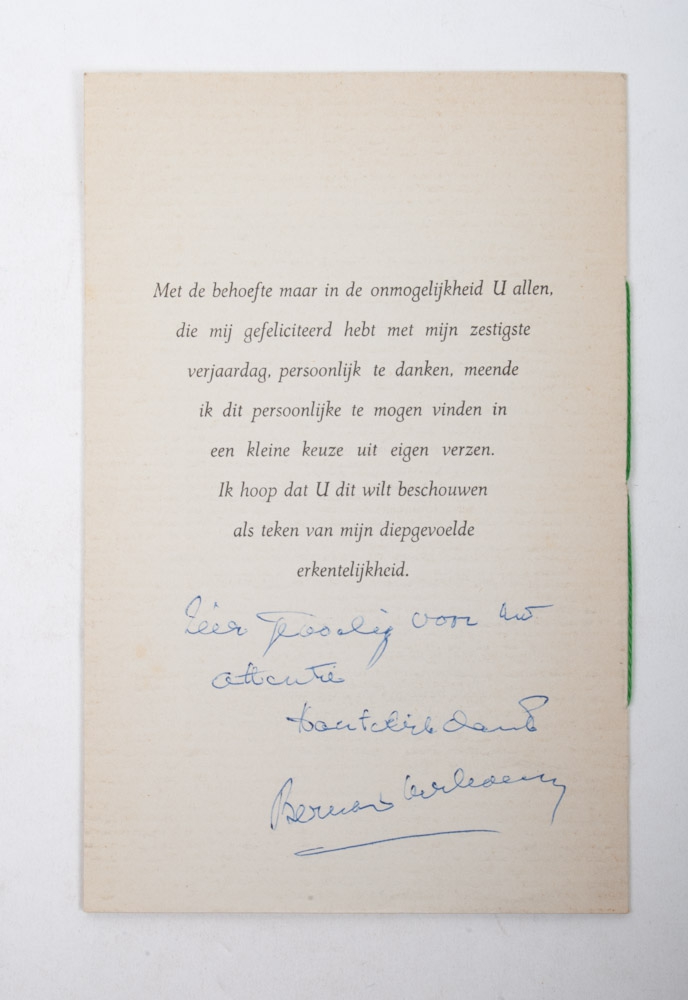 Met de behoefte maar in de onmogelijkheid U allen,
die mij gefeliciteerd hebt met mijn zestigste
verjaardag, persoonlijk te danken, meende
ik dit persoonlijke te mogen vinden in
een kleine keuze uit eigen verzen.
Ik hoop dat U dit wilt beschouwen
als teken van mijn diepgevoelde
erkentelijkheid.
Zéér voor uw
attentie
hartelijk dank
Bernard Verhoeven